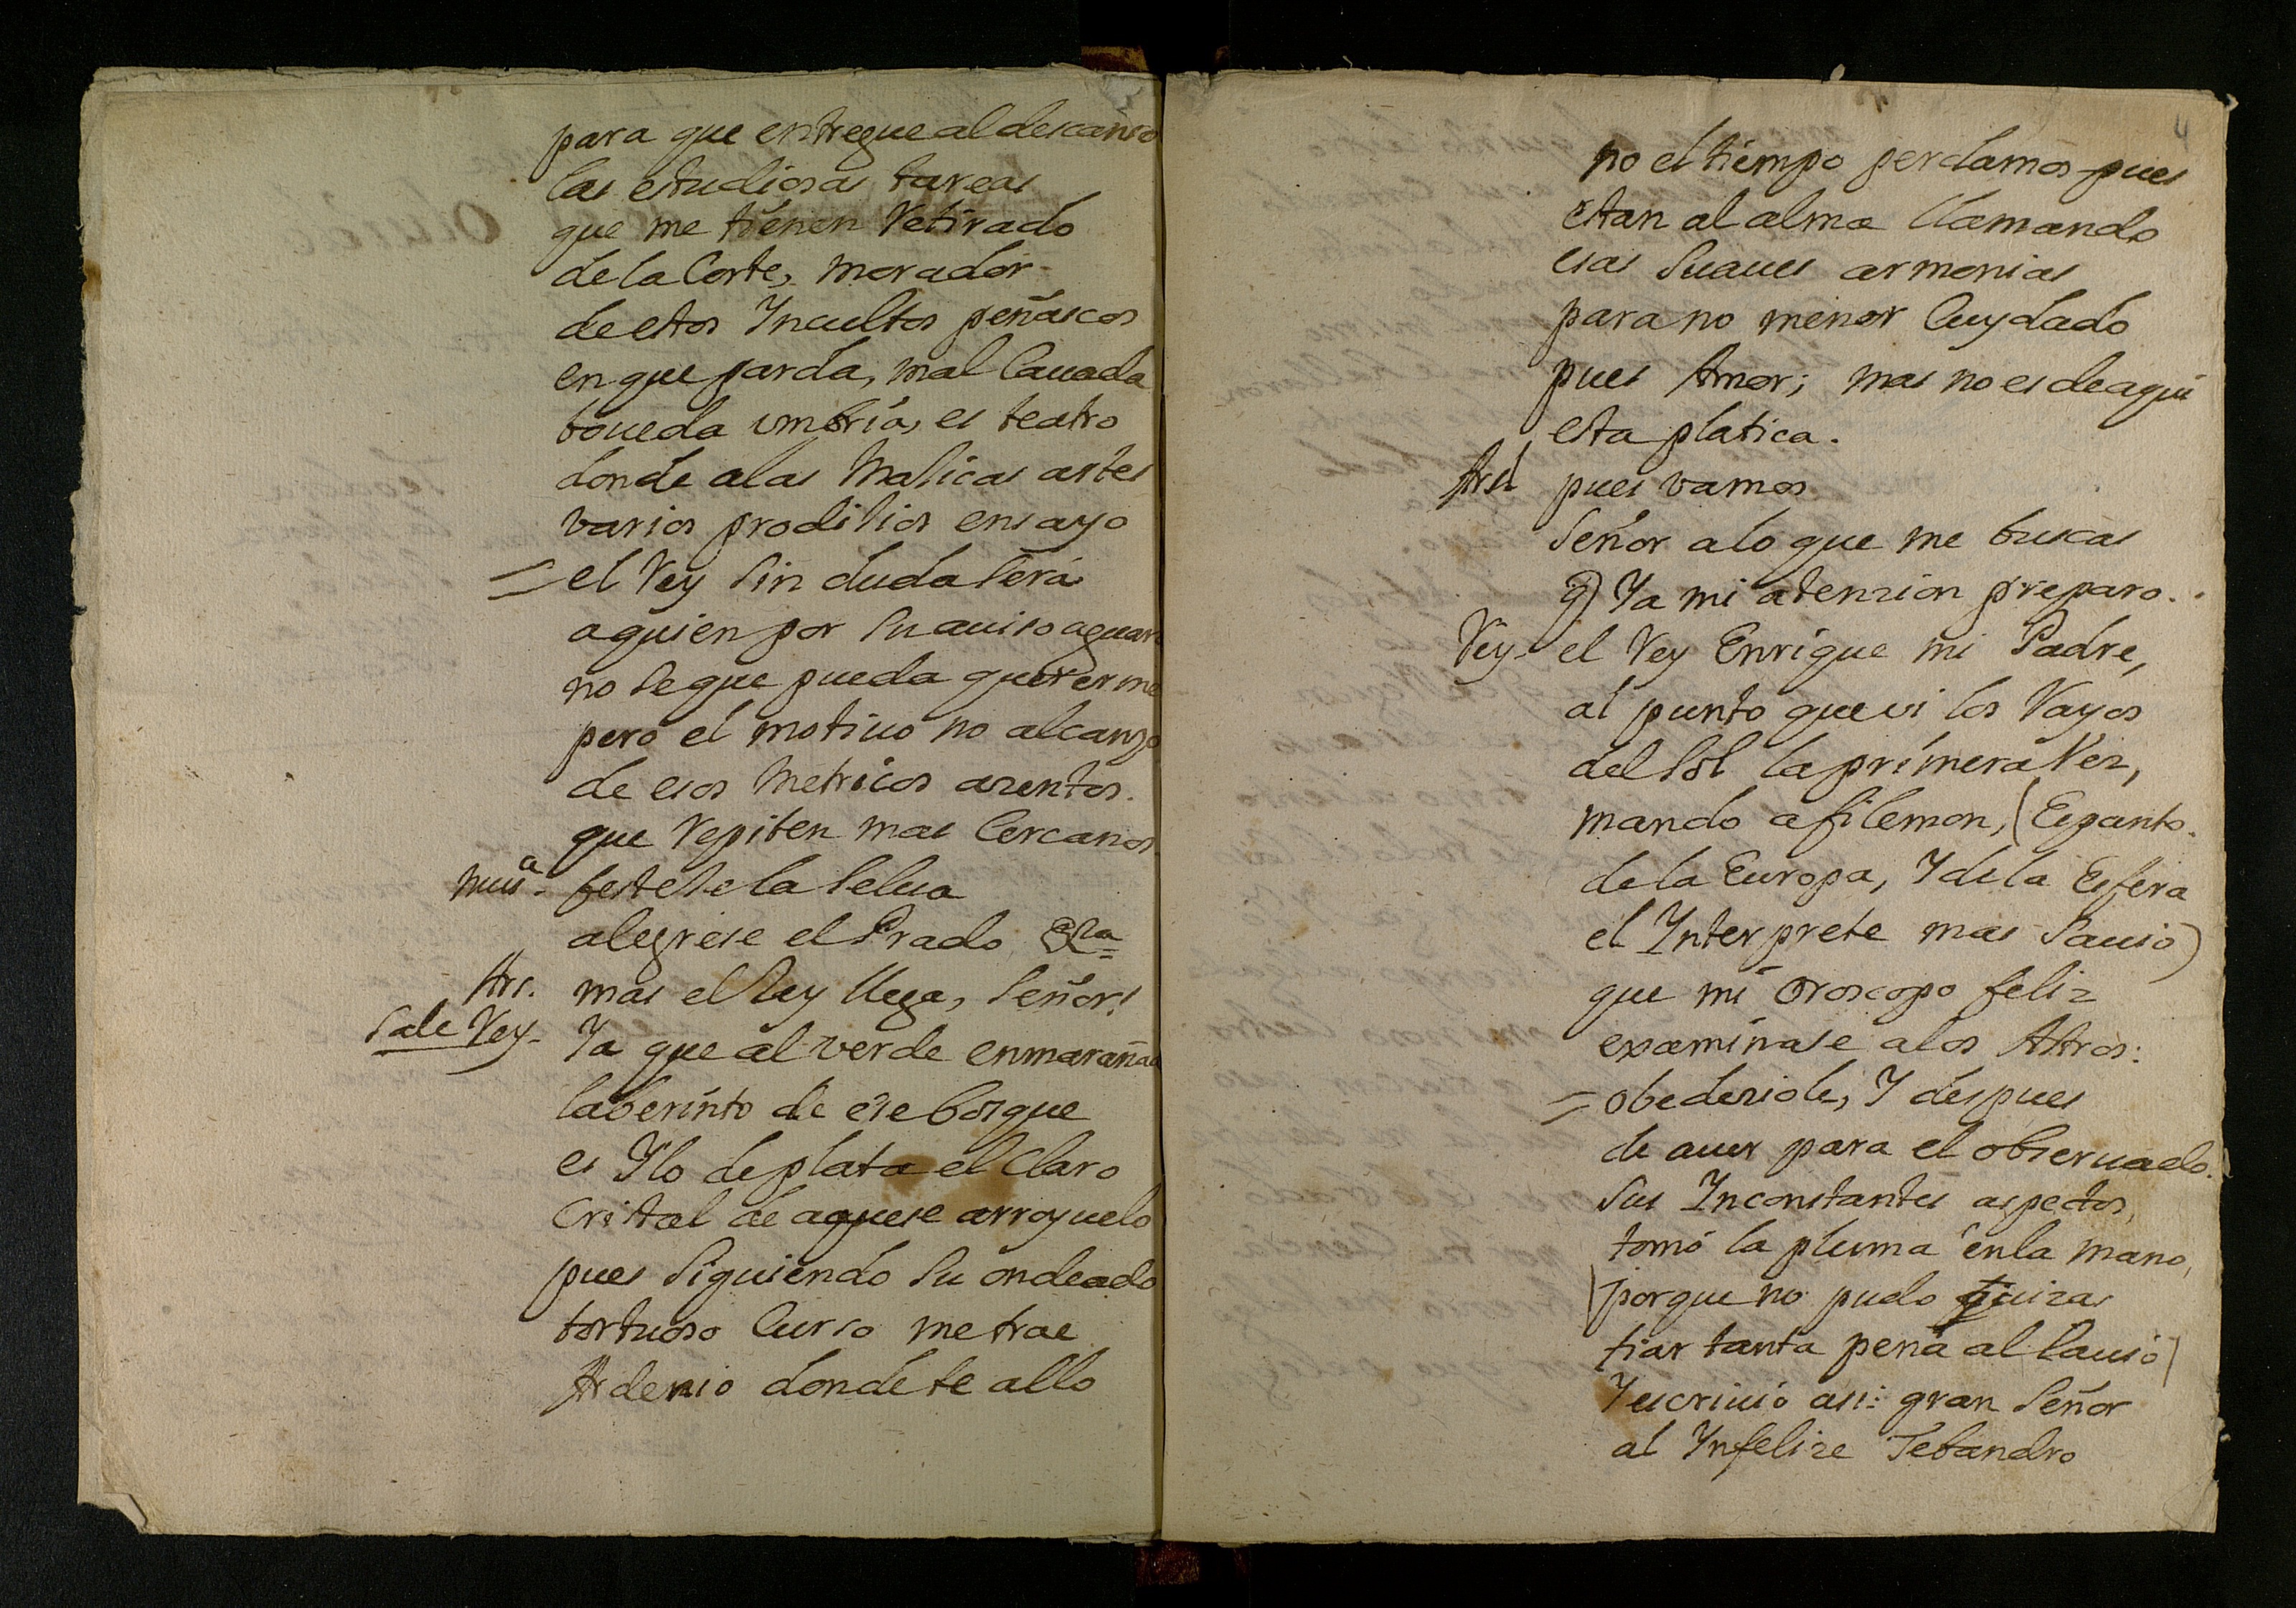 para que entregue al descanso
las estudiosas tareas
que me tienen Retirado
de la Corte, morador
de estos Incultos peñascos
en que parda, mal Cauada
boueda umbria, es teatro
donde a las Majicas artes
varios prodijios ensayo
= el Rey sin duda sera
a quien por su auiso aguar
no se que pueda quererme
pero el motiuo no alcanzo
de esos Metricos azentos.
que Repiten mas Cercanos.
Musª. festeje la selua
alegrese el Prado &ra=
Ars. mas el Rey llega, Señor!
Sale Rey- Ya que al verde enmarañad
laberinto de ese bosque
es Ylo de plata el Claro
Cristal de aquese arroyuelo
pues siguiendo su ondeado
tortuoso Curso me trae
Ardenio donde te allo
4
no el tiempo perdamos pues
estan al alma llamando
esas suaues armonias
para no menor Cuydado
pues Amor; mas no es de aqui
esta platica.
Ars. pues vamos
Señor a lo que me buscas
q) Ya mi atenzion preparo.
Rey- el Rey Enrique mi Padre,
al punto que vi los Rayos
del Sol la primera Vez,
mando a filemon, (Espanto.
de la Europa, Y de la Esfera
el Interprete mas sauio)
que mi Oroscopo feliz
examinase a los Astros:
= obedeziole, Y despues
de auer para el obseruado.
sus Inconstantes aspectos,
tomó la pluma en la mano,
(porque no pudo quizas
fiar tanta pena al lauio)
Y escriuió asi: gran Señor
al Infelize Tebandro